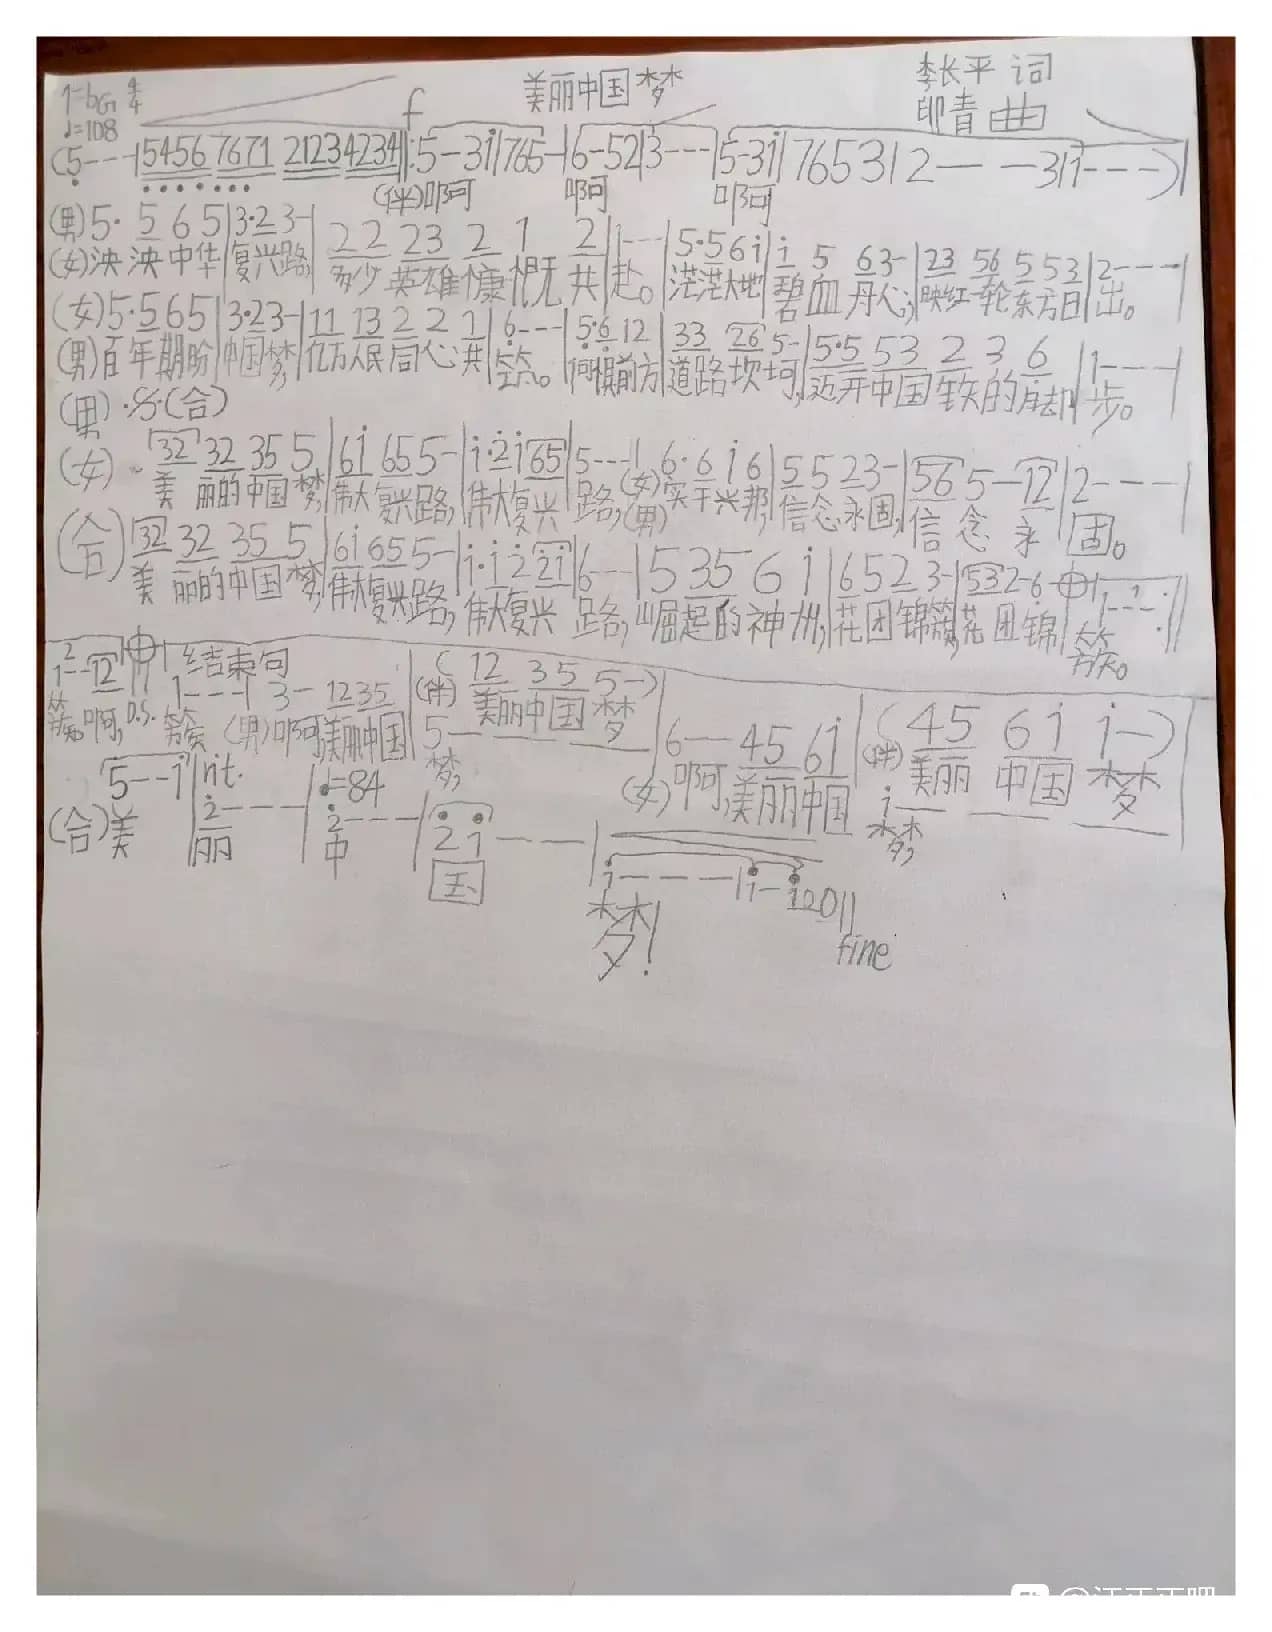 美丽中国梦
李长平 词
印青 曲
1=bG 4/4
♩=108
f
(5---|5456 7671 2123 4234|:5-3i|765-|6-52|3---|5-3i|76531|2---31|1---)|
(伴)啊 啊 啊
(男)5· 5 6 5|3·2 3-|22 23 2 1 2|1---|5·5 6 i|i 5 6 3-|23 56 5 53|2---|
(女)泱泱中华复兴路,多少英雄慷慨共赴。茫茫大地碧血丹心,映红一轮东方日出。
(女)5·5 6 5|3·2 3-|11 13 2 2 1|6---|5·6 12|33 26 5-|5·5 53 2 3 6|1---|
(男)百年期盼中国梦,亿万人民同心共筑。何惧前方道路坎坷,迈开中国铁的脚步。
(男)·𝄋·(合)
(女) 32 32 35 5|6i 65 5-|i·2i65|5---|6·6 i 6|5 5 2 3-|56 5-12|2---|
美丽的中国梦,伟大复兴路,伟大复兴路,(女)(男)实干兴邦,信念永固,信念永固。
(合)32 32 35 5|6i 65 5-|i·i 2 2i|6---|5 35 6 i|6 5 2 3-|53 2-6·|1---:||
美丽的中国梦,伟大复兴路,伟大复兴路,崛起的神州,花团锦簇,花团锦簇。
2 结束句
1--12|1---|3- 1235|(伴)(12 35 5-)|6--45 6i|(伴)(45 6i i-)|
簇,啊,D.S. 簇 (男)啊,美丽中国 美丽中国梦 (女)啊,美丽中国 美丽中国梦
5---
梦,
i---
梦,
5--i|rit. 2---|♩=84 2---|21---|i---|i-i20||
(合)美丽中国梦!
fine